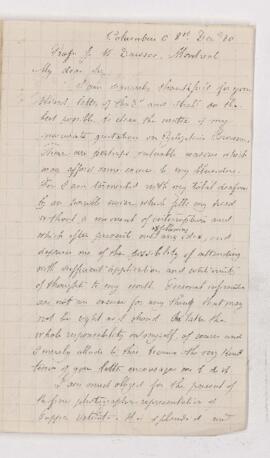 Columbus O 8th Decr 80
Prof. J. W. Dawson, Montreal
My dear Sir,
I am sincerely thankful for your
letter of the 2d and shall do the
best possible to clear the matter of my
inaccurate quotation on
There are perhaps valuable reasons which
may afford some excuse to my blunders.
For I am tormented with my total deafness
by an which fills my head
without a moment of interruption and
which often prevents my following any idea, and
deprives me of the possibility of attending
with sufficient application and
of thought to my work. Personal infirmities
are not an excuse for any thing that may
not be right as it should be. I take the
whole responsibility on myself, of course and
I merely allude to this because the very kind
tone of your letter encourages me to do it.
I am much obliged for the present of
the fine photographic representation of
. It is splendid and